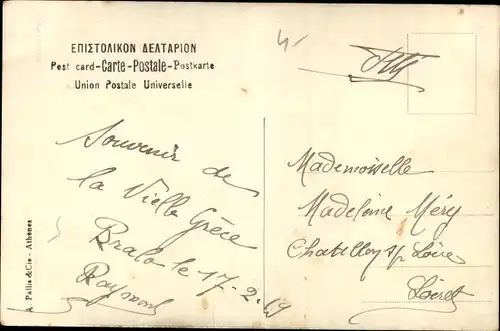 ΕΠΙΣΤΟΛΙΚΟΝ ΔΕΛΤΑΡΙΟΝ
Post card-Carte-Postale-Postkarte
Union Postale Universelle
Souvenir de
la Vielle Grèce
Bralo le 17-2-19
Raymond
A. Pallis & Cie - Athènes
Mademoiselle
Madeleine Méry
Chatillon s/ Loire
Loiret